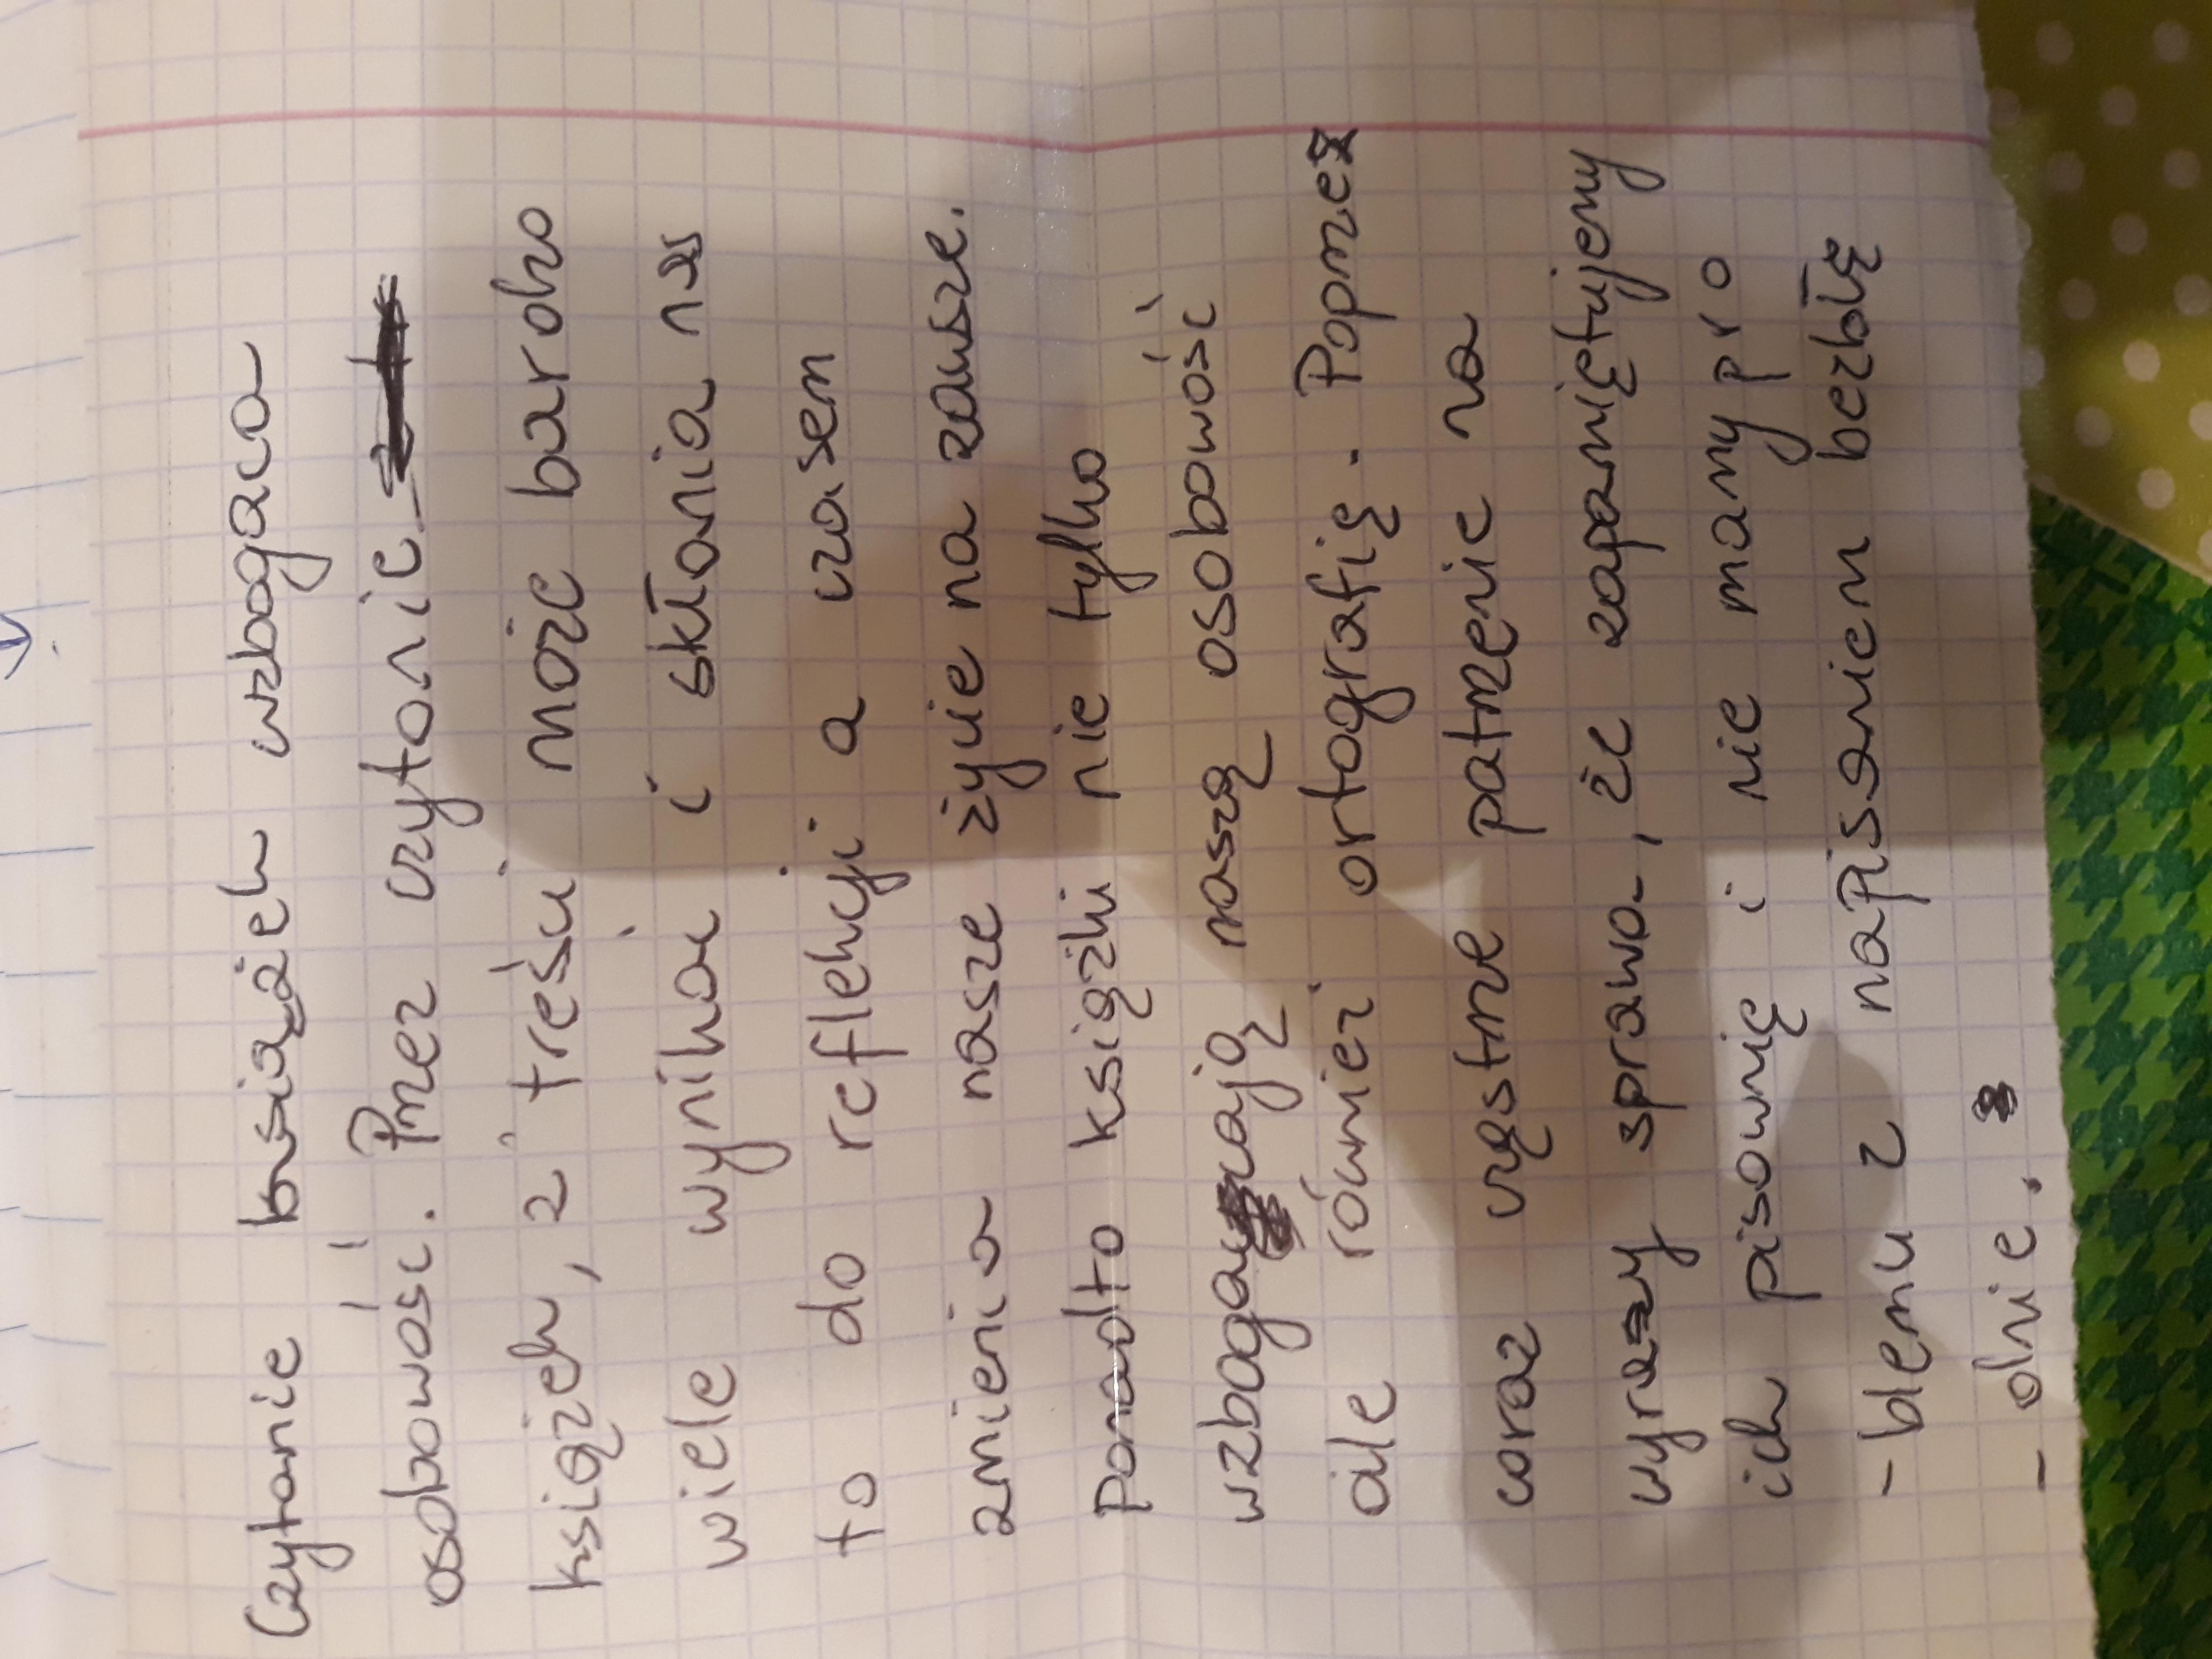 Czytanie książek wzbogaca
osobowość. Przez czytanie
książek, z treści może bardzo
wiele wynikać i skłania nas
to do refleksji a czasem
zmienia nasze życie na zawsze.
Ponadto książki nie tylko
wzbogacają naszą osobowość
ale również ortografię. Poprzez
coraz częstrze patrzenie na
wyrazy sprawa, że zapamiętujemy
ich pisownię i nie mamy pro
-blemu z napisaniem bezbłę
-dnie.